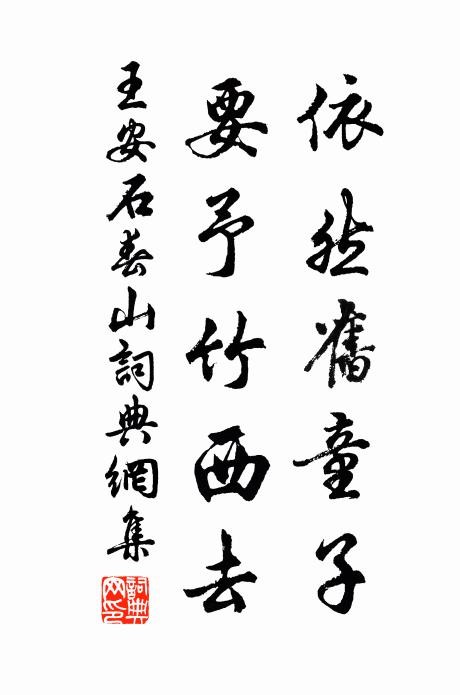 依然舊童子
要予竹西去
王安石春山詞典網集
詞典
网印